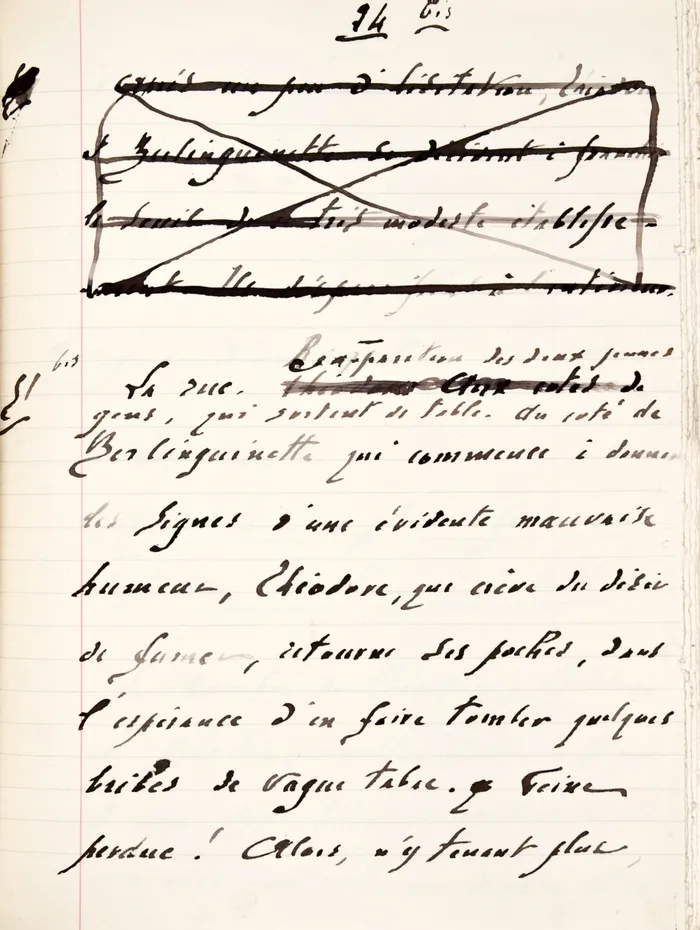 24 bis
Après un peu d'hésitation, Théodore
et Berlinguinette se décident à franchir
le seuil de très modeste établisse-
ment. Ils disparaissent à l'intérieur.
Réapparition des deux jeunes
bis
La rue. Théodore Aux cotés de
gens, qui sortent de table. Au coté de
Berlinguinette qui commence à donner
des signes d'une évidente mauvaise
humeur, Théodore, que crève du désir
de fumer, retourne ses poches, dans
l'espérance d'en faire tomber quelques
bribes de vague tabac. Peine
perdue ! Alors, n'y tenant plus,